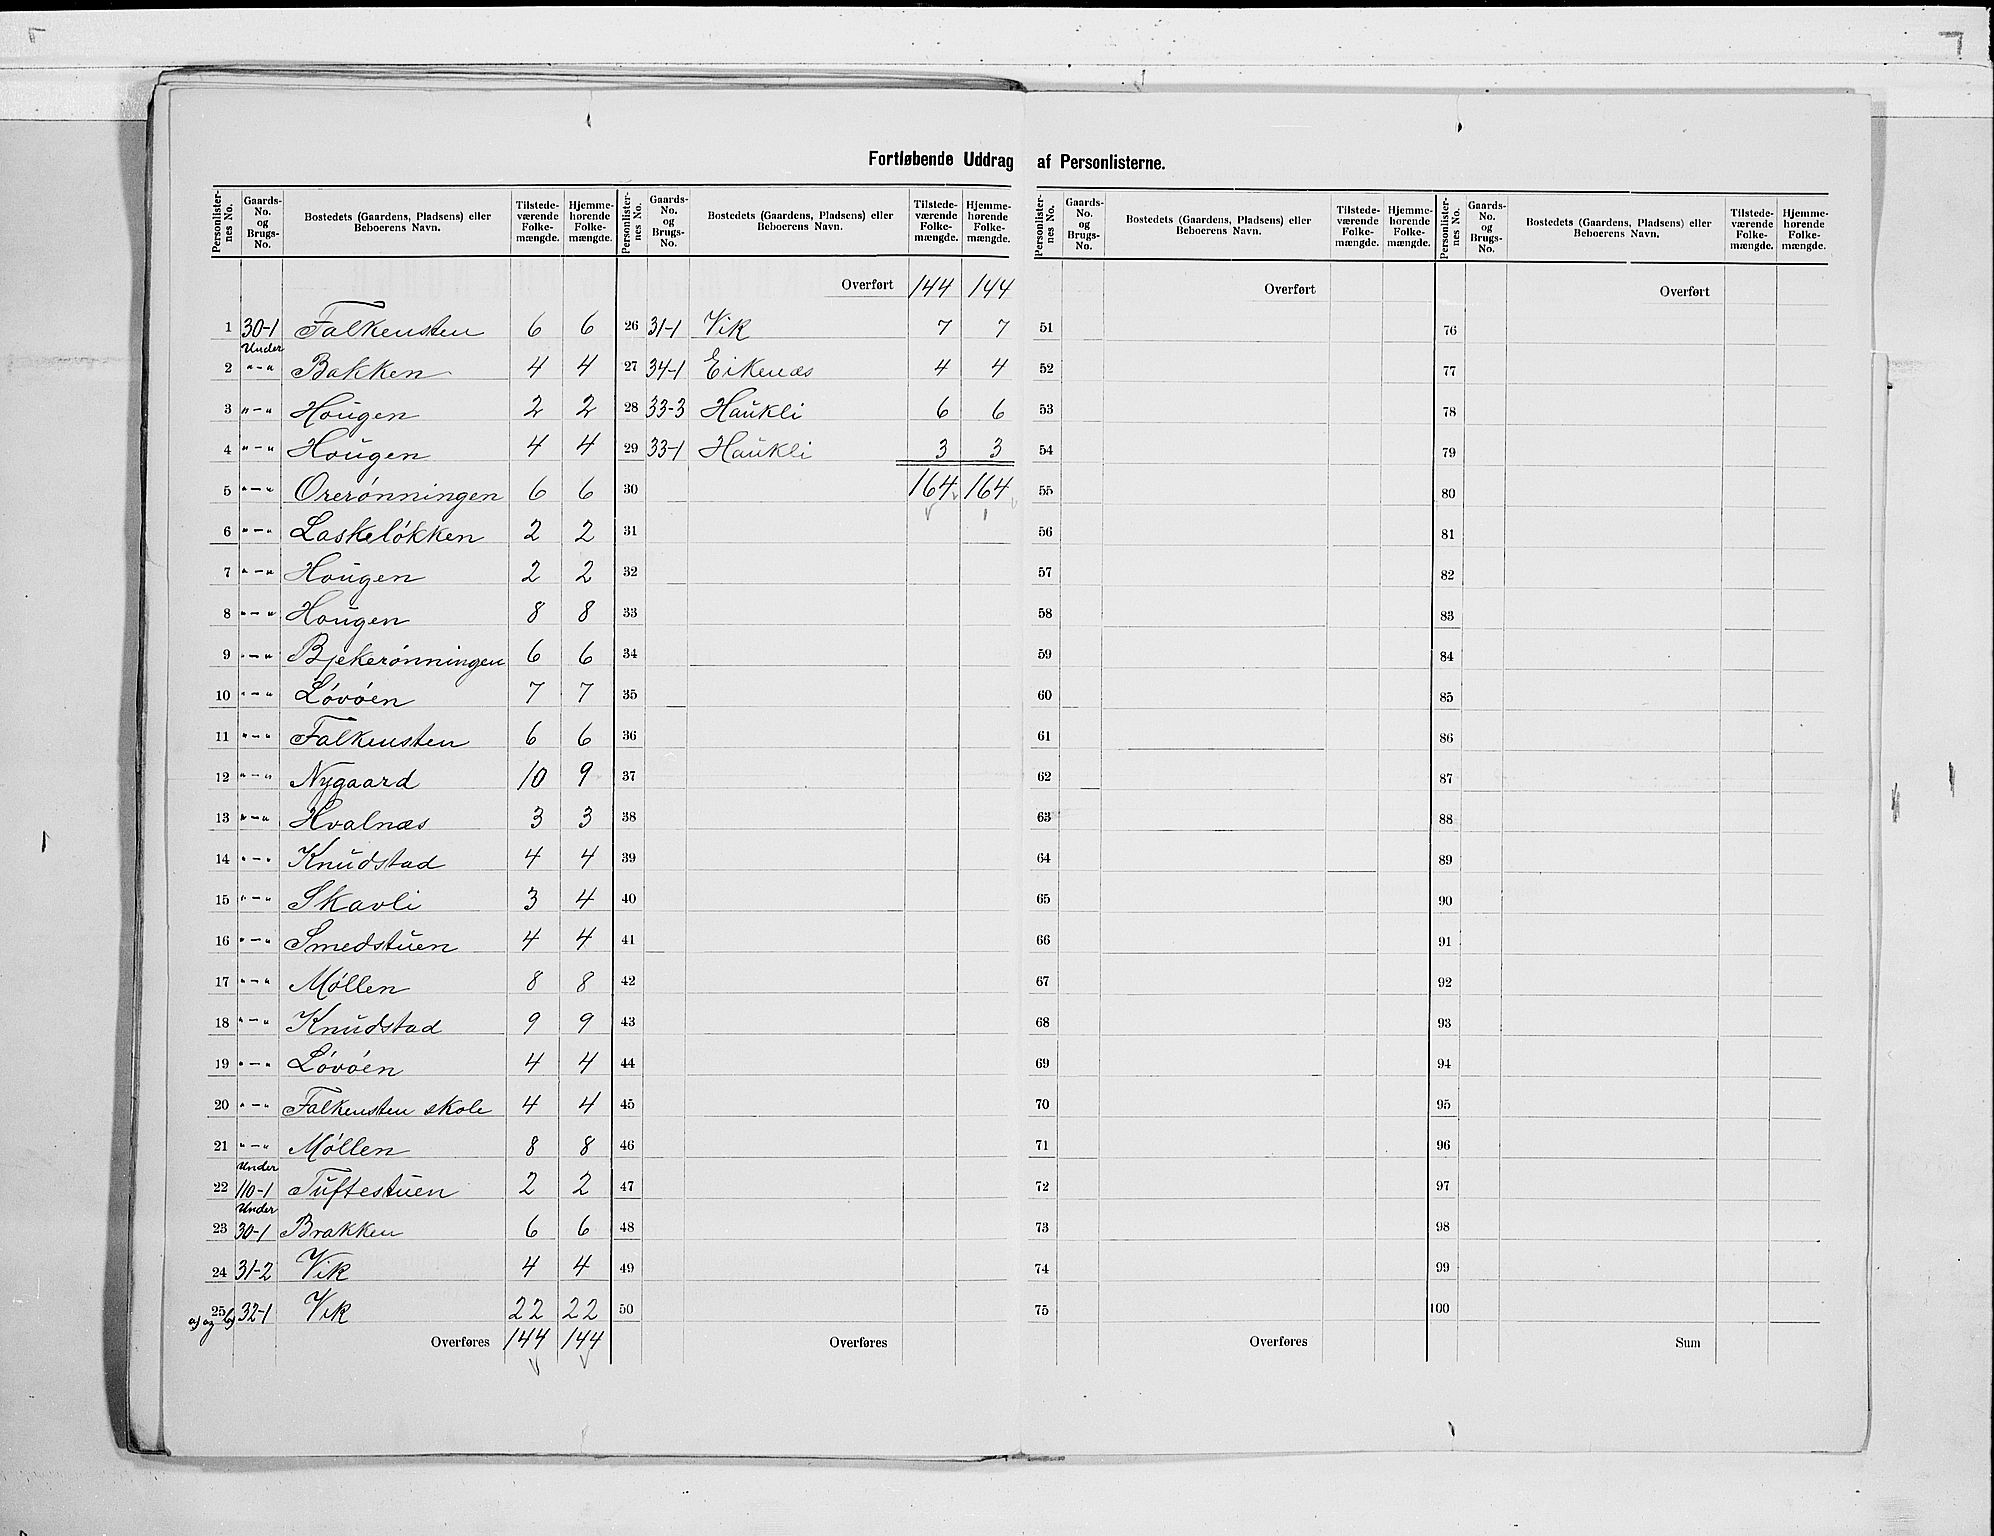 Fortløbende Uddrag af Personlisterne.
Personlister-nes No. Gaards-No. og Brugs-No. Bostedets (Gaardens, Pladsens) eller Beboerens Navn. Tilstede-værende Folke-mængde. Hjemme-hørende Folke-mængde.
1 30-1 Falkensten 6 6
Under
2 "-" Bakken 4 4
3 "-" Hougen 2 2
4 "-" Hougen 4 4
5 "-" Orerønningen 6 6
6 "-" Laskeløkken 2 2
7 "-" Hougen 2 2
8 "-" Hougen 8 8
9 "-" Bjekerønningen 6 6
10 "-" Løvøen 7 7
11 "-" Falkensten 6 6
12 "-" Nygaard 10 9
13 "-" Hvalnæs 3 3
14 "-" Knudstad 4 4
15 "-" Skavli 3 4
16 "-" Smedstuen 4 4
17 "-" Møllen 8 8
18 "-" Knudstad 9 9
19 "-" Løvøen 4 4
20 "-" Falkensten skole 4 4
21 "-" Møllen 8 8
Under
22 110-1 Tuftestuen 2 2
Under
23 30-1 Brakken 6 6
24 31-2 Vik 4 4
25 a) og b) 32-1 Vik 22 22
Overføres 144 144
Personlister-nes No. Gaards-No. og Brugs-No. Bostedets (Gaardens, Pladsens) eller Beboerens Navn. Tilstede-værende Folke-mængde. Hjemme-hørende Folke-mængde.
Overført 144 144
26 31-1 Vik 7 7
27 34-1 Eikenæs 4 4
28 33-3 Haukli 6 6
29 33-1 Haukli 3 3
30 164 164
31
32
33
34
35
36
37
38
39
40
41
42
43
44
45
46
47
48
49
50
Overføres
Personlister-nes No. Gaards-No. og Brugs-No. Bostedets (Gaardens, Pladsens) eller Beboerens Navn. Tilstede-værende Folke-mængde. Hjemme-hørende Folke-mængde.
Overført
51
52
53
54
55
56
57
58
59
60
61
62
63
64
65
66
67
68
69
70
71
72
73
74
75
Overføres
Personlister-nes No. Gaards-No. og Brugs-No. Bostedets (Gaardens, Pladsens) eller Beboerens Navn. Tilstede-værende Folke-mængde. Hjemme-hørende Folke-mængde.
Overført
76
77
78
79
80
81
82
83
84
85
86
87
88
89
90
91
92
93
94
95
96
97
98
99
100
Sum